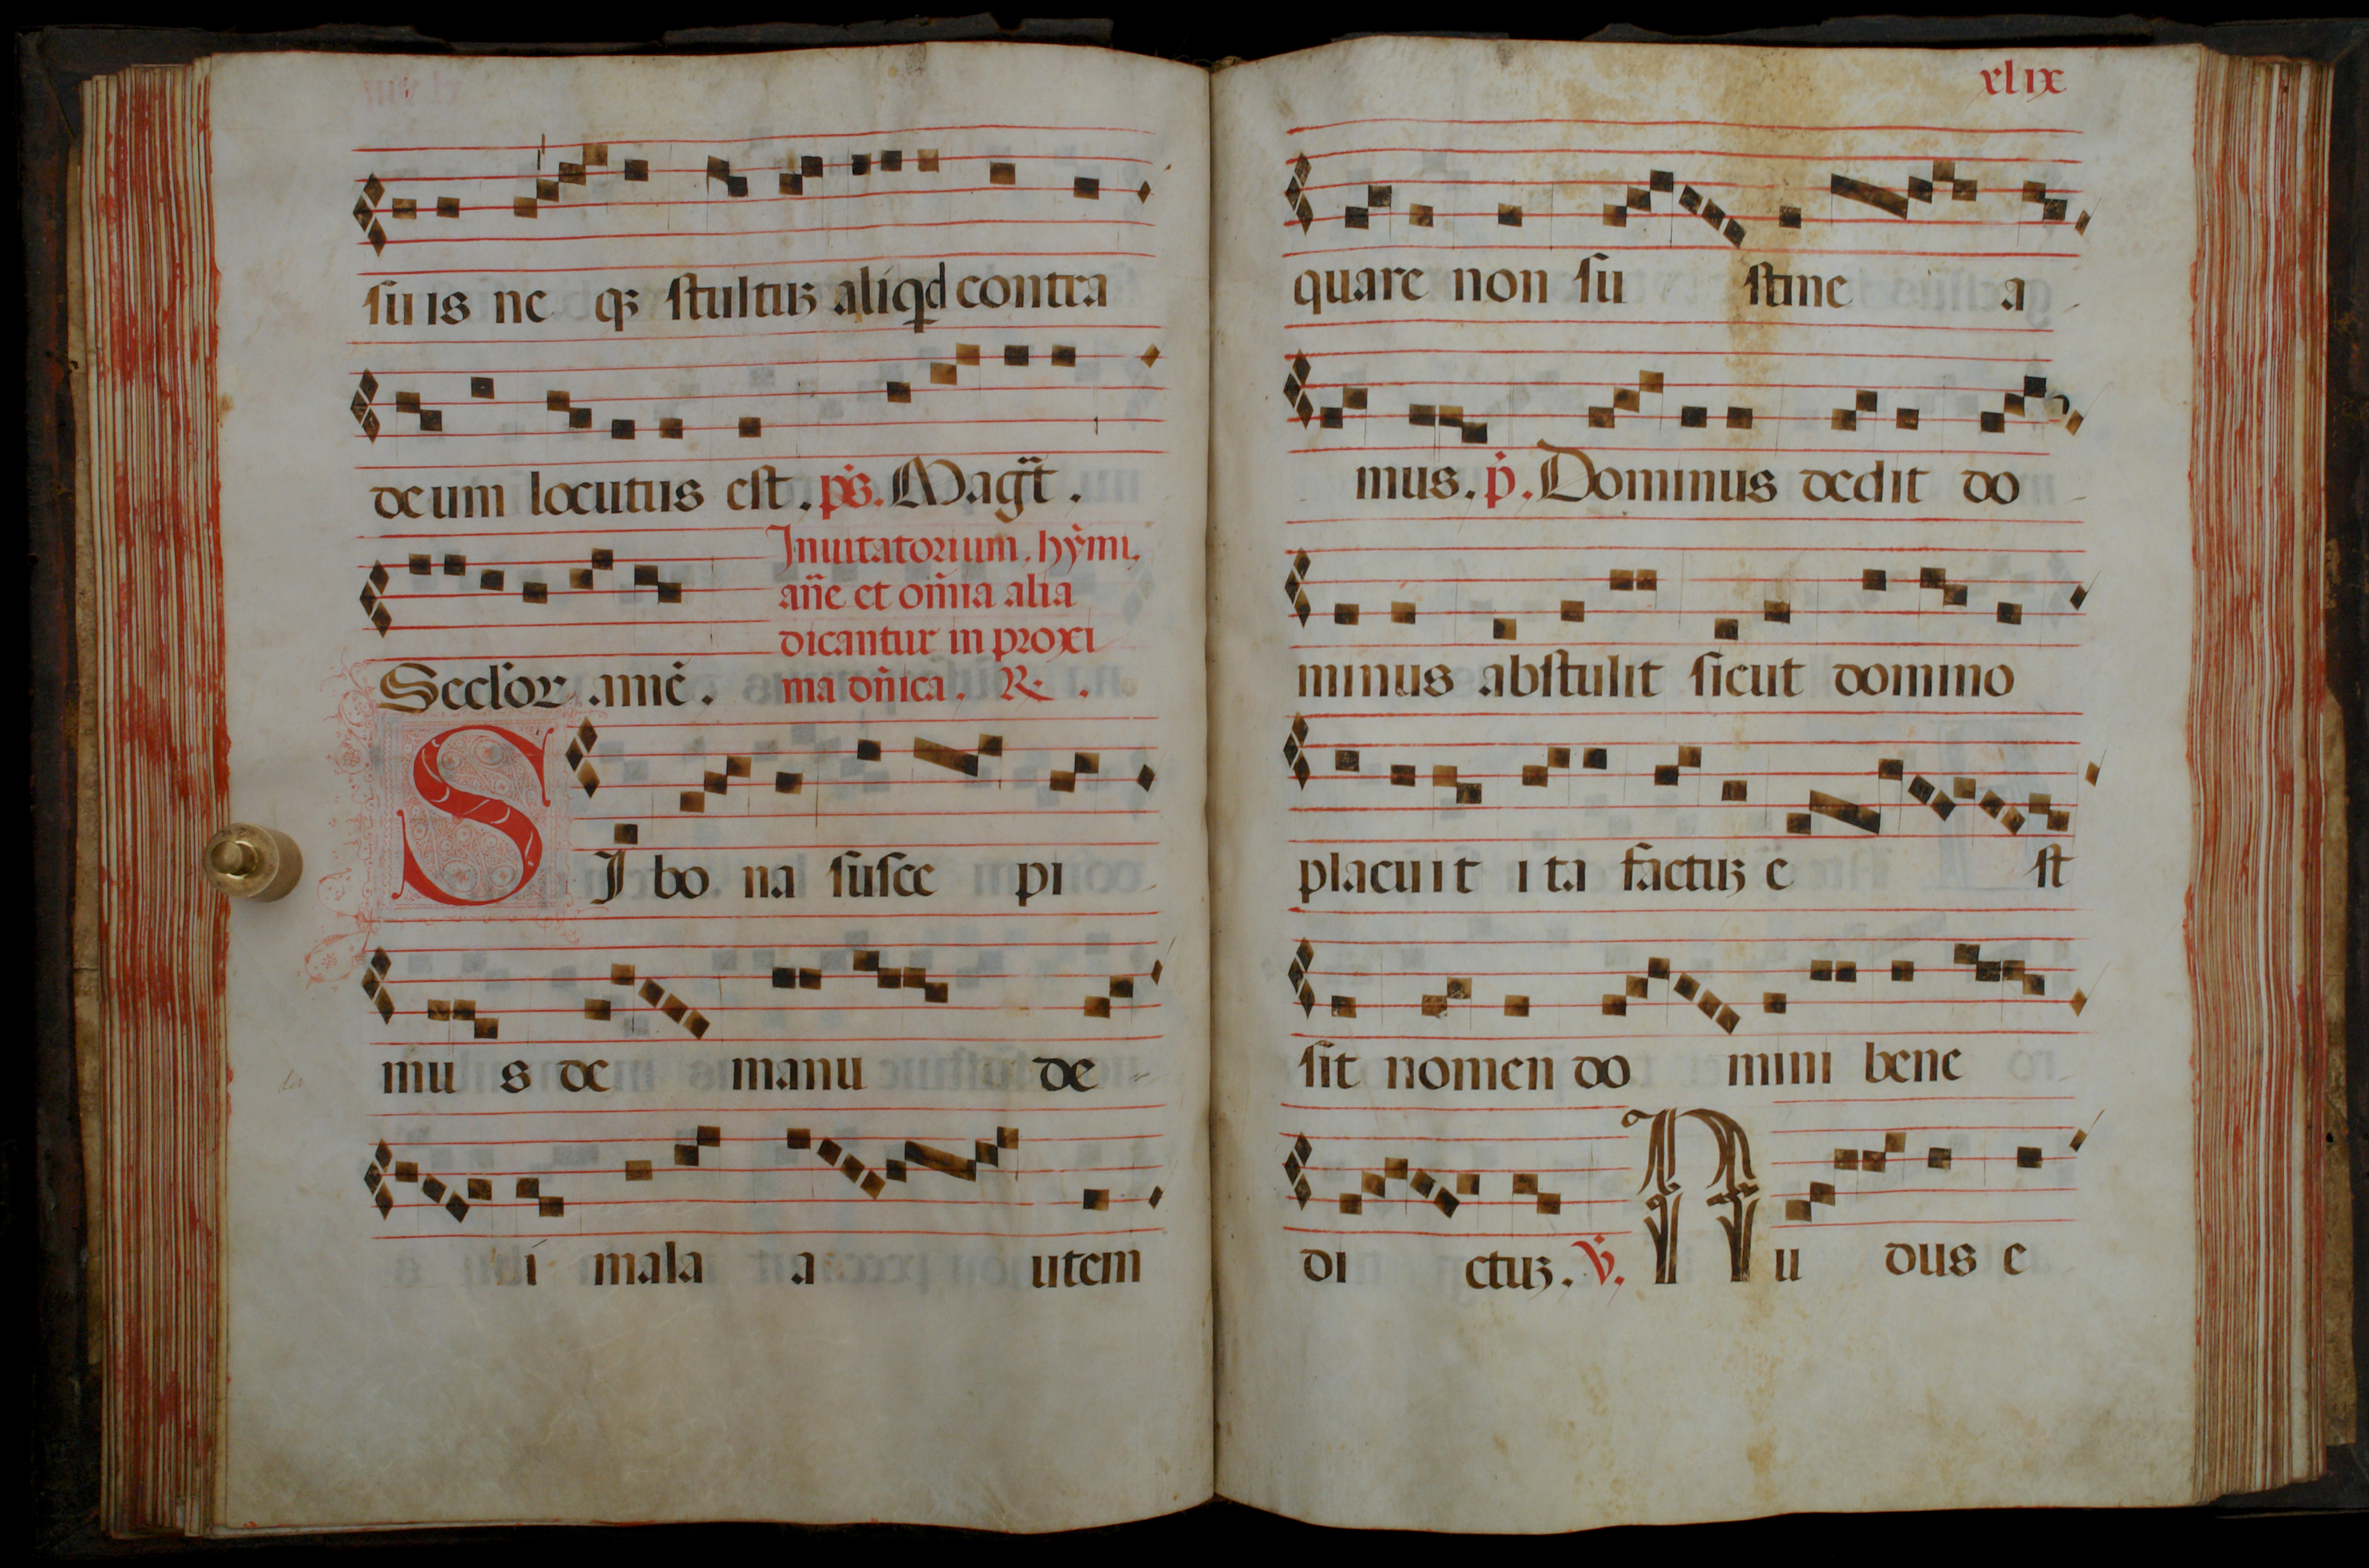 suis ne qꝫ stultꝰ aliqd contra
deum locutus est. ps. Magt̄.
Inuitatorium, hymi,
añe et om̄ia alia
dicantur in proxi
Seclor. amē. ma dñica. R.
SI bona susce pi
mu s de manu de
i mala a utem
xlix
quare non su stine a
mus. p. Dominus dedit do
minus abstulit sicut domino
placuit ita factꝰ e st
sit nomen do mini bene
di ctꝰ. V. Nu dus e